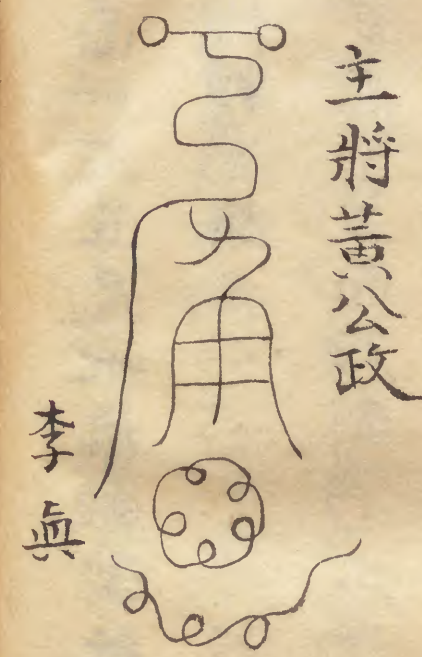 主將黃公政
李眞